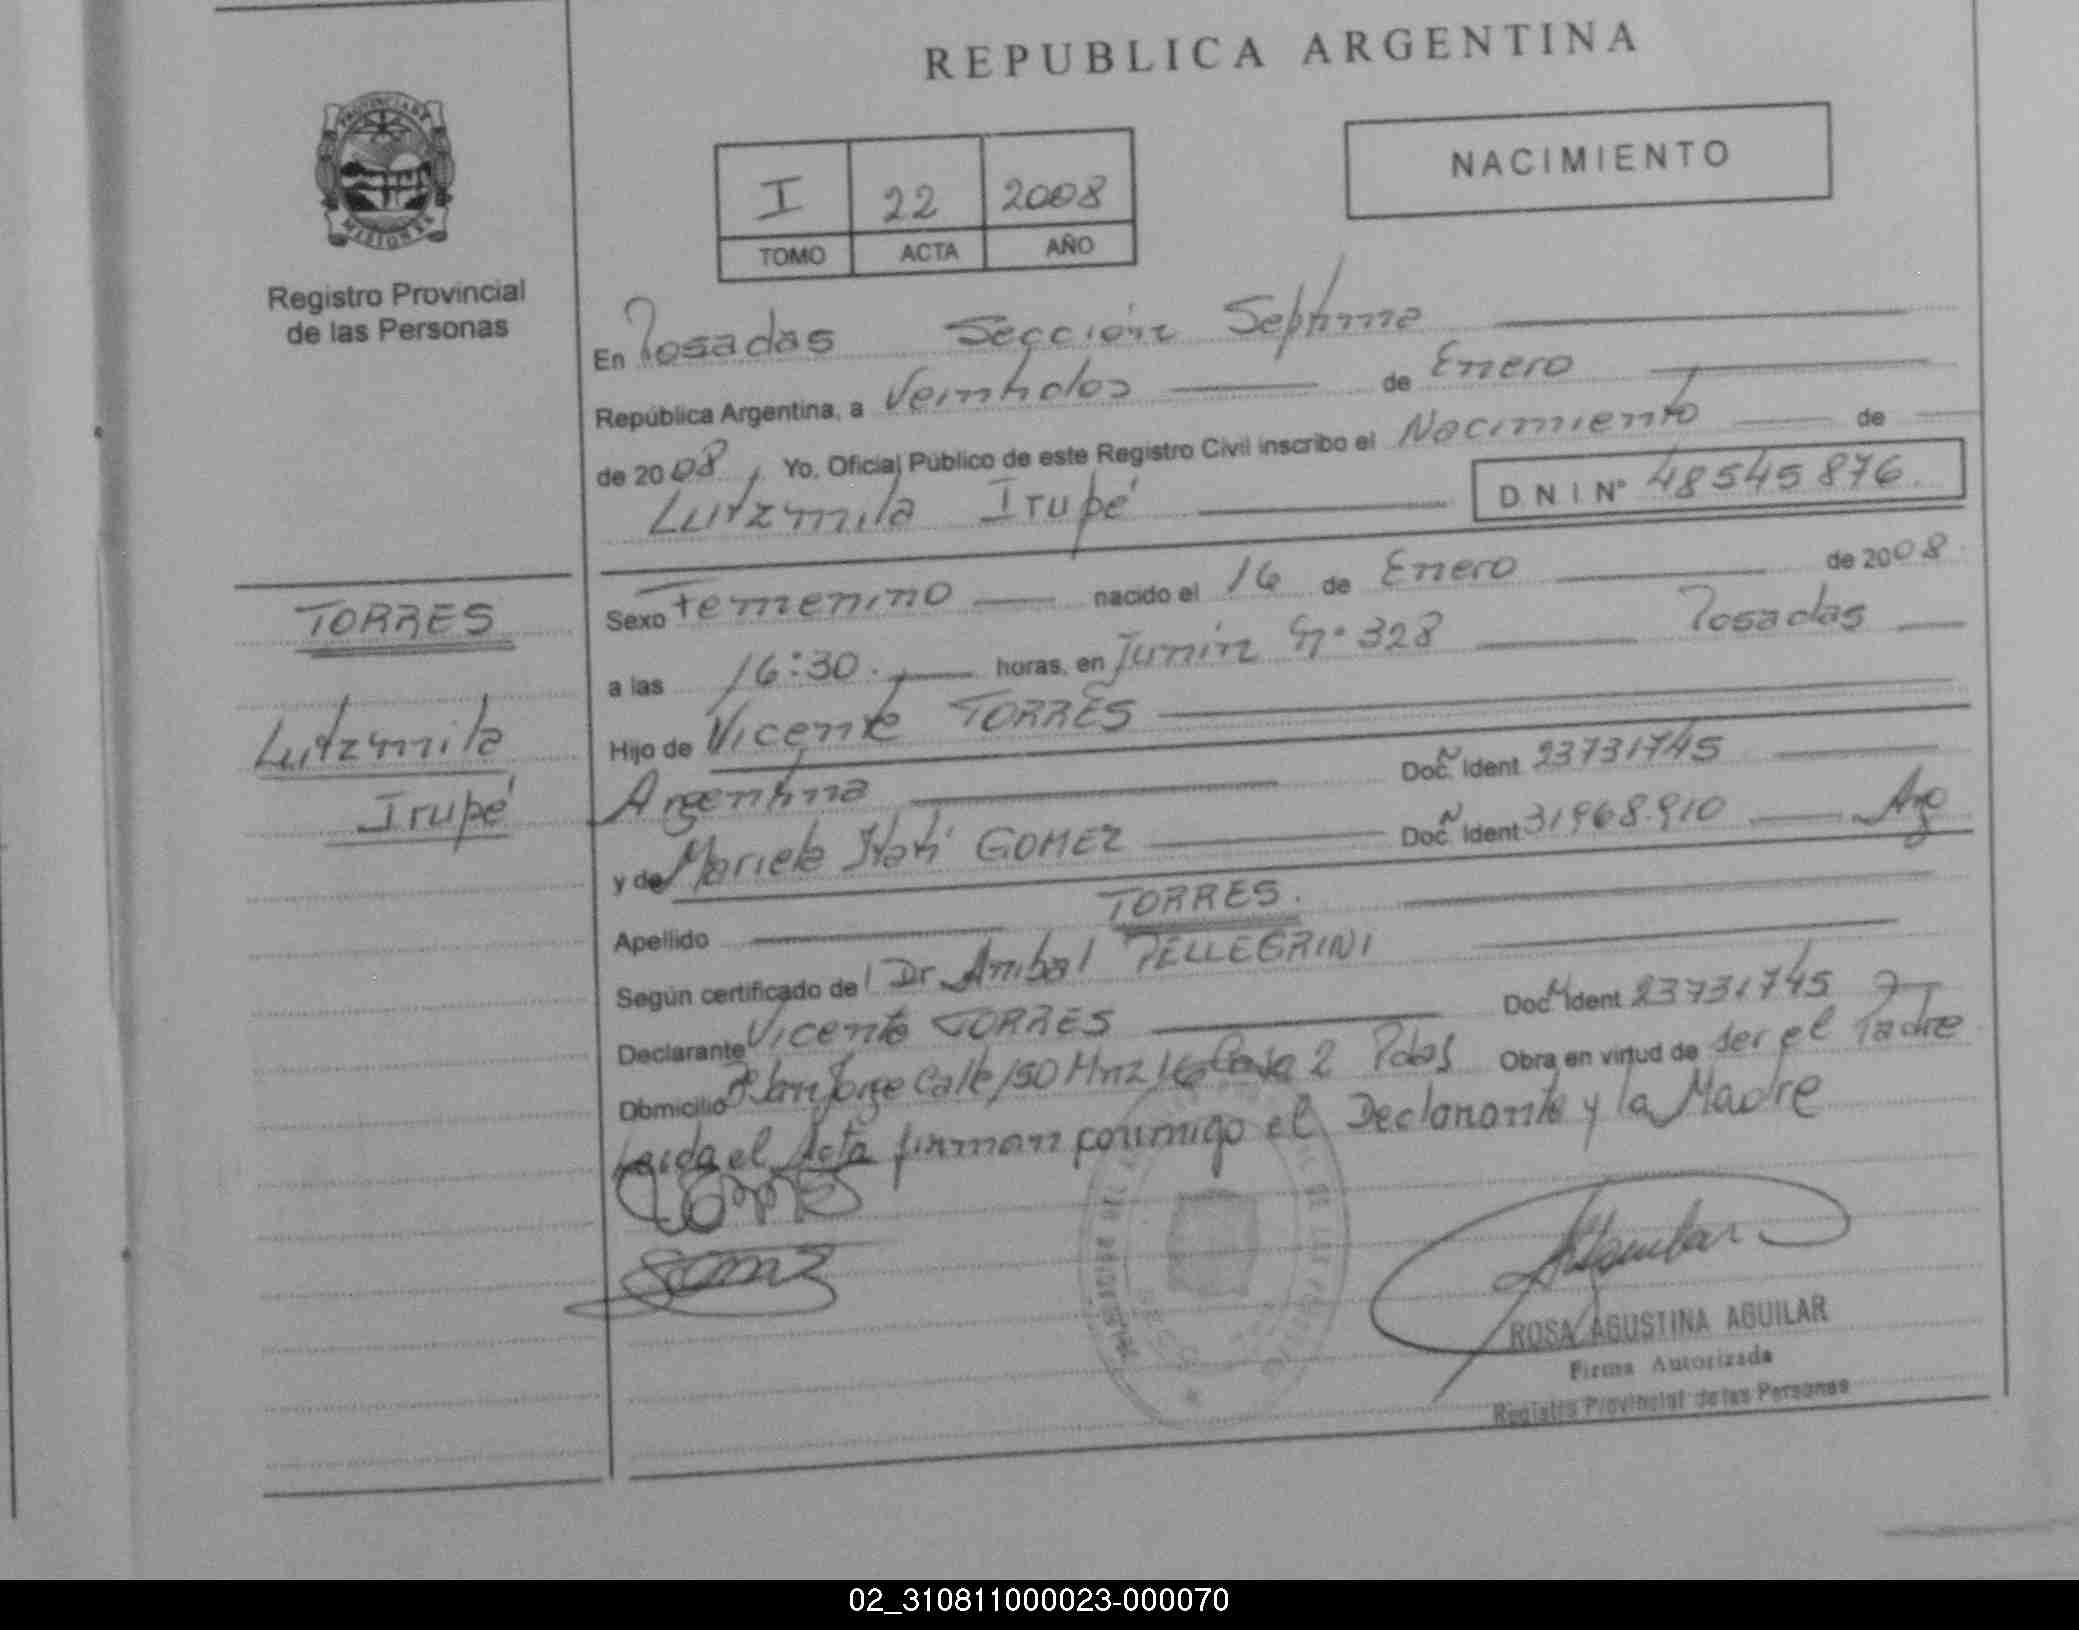 REPUBLICA ARGENTINA
PROVINCIA DE
MISIONES
Registro Provincial
de las Personas
I 22 2008
TOMO ACTA AÑO
NACIMIENTO
En Posadas Sección Septima
República Argentina, a Veintidos de Enero
de 2008, Yo, Oficial Público de este Registro Civil inscribo el Nacimiento de
Lutzmila Irupé DNI Nº 48545876.
TORRES
Lutzmila
Irupé
Sexo Femenino nacido el 16 de Enero de 2008
a las 16:30. horas, en Junín Nº 328 Posadas
Hijo de Vicente TORRES
Argentina Doc. Ident 23731745
y de Mariela Itatí GOMEZ Doc. Ident 31968.910 Arg
Apellido TORRES.
Según certificado del Dr. Anibal PELLEGRINI
Declarante Vicente TORRES Doc. Ident 23731745
Domicilio Jorge Calle 150 Mnz 16 Casa 2 Pdas Obra en virtud de ser el Padre
Leida el Acta firman conmigo el Declarante y la Madre
ROSA AGUSTINA AGUILAR
Firma Autorizada
Registro Provincial de las Personas
02_310811000023-000070